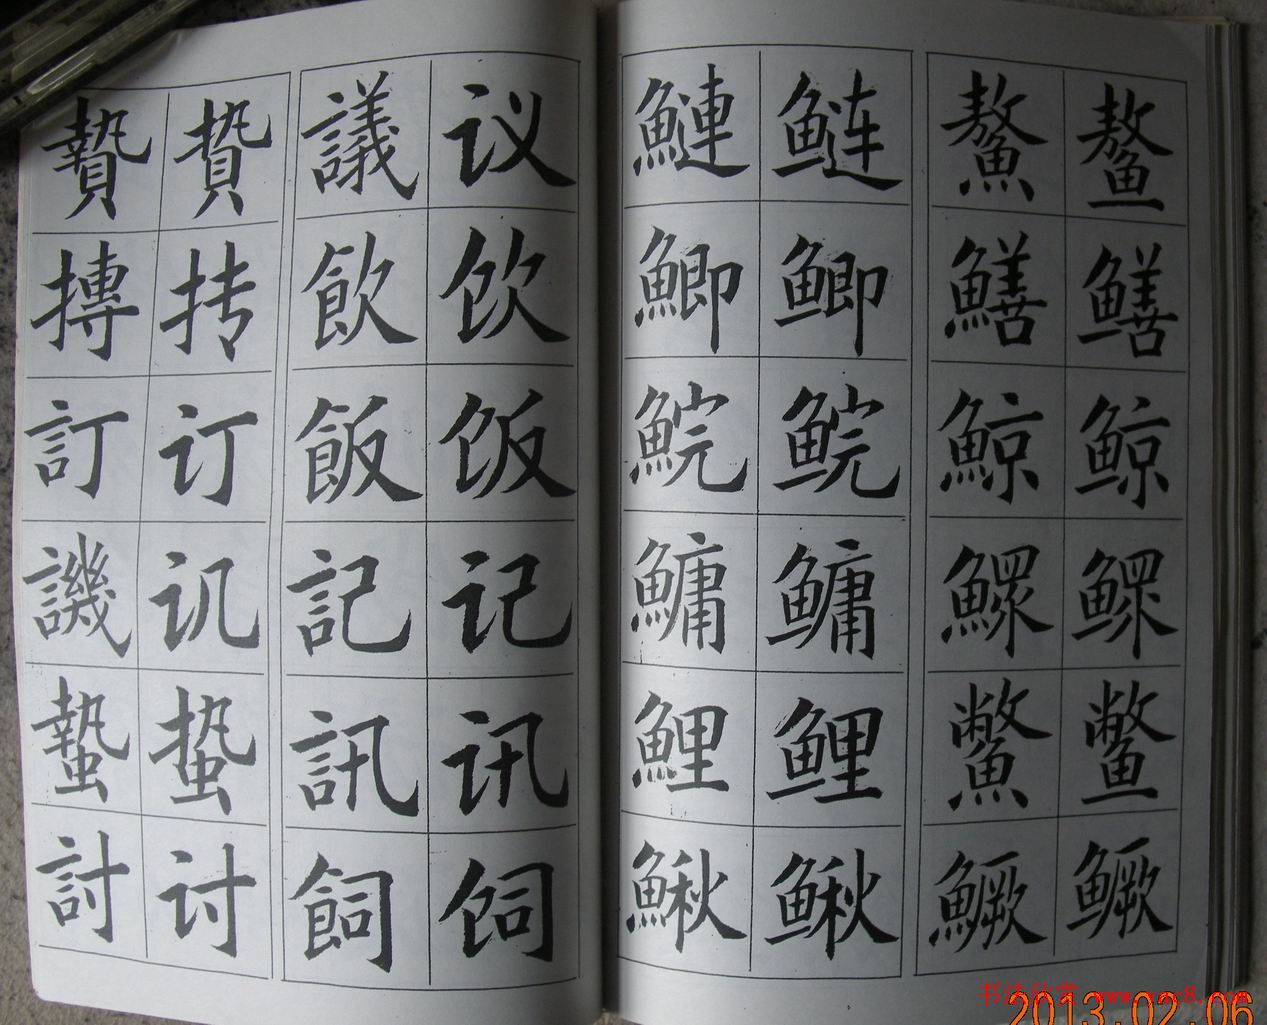 贄 贽 議 议
摶 抟 飲 饮
訂 订 飯 饭
譏 讥 記 记
蟄 蛰 訊 讯
討 讨 飼 饲
鰱 鲢 鰲 鳌
鯽 鲫 鱔 鳝
鯇 鲩 鯨 鲸
鱅 鳙 鰥 鳏
鯉 鲤 鱉 鳖
鰍 鳅 鱖 鳜
书法欣赏
2013.02.06